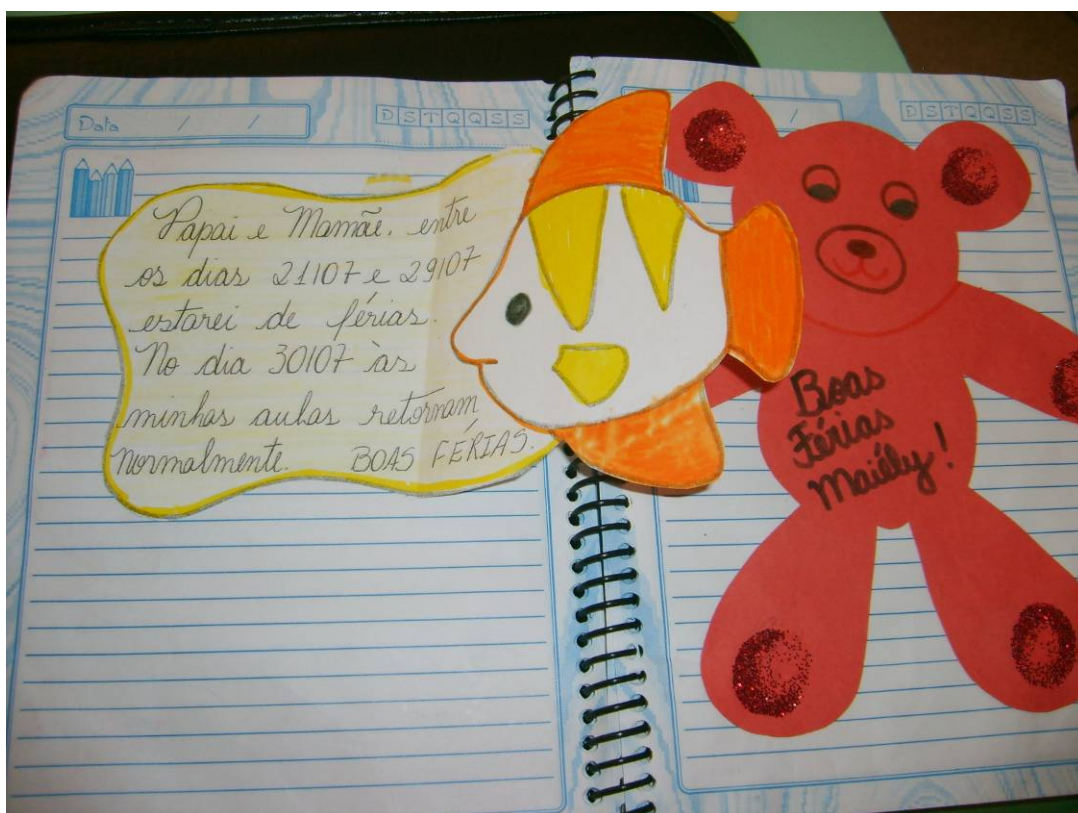 Data / /
D S T Q Q S S
Papai e Mamãe, entre
os dias 21/07 e 29/07
estarei de férias.
No dia 30/07 às
minhas aulas retornam
normalmente. BOAS FÉRIAS.
/
D S T Q Q S S
Boas
Férias
Maiély!